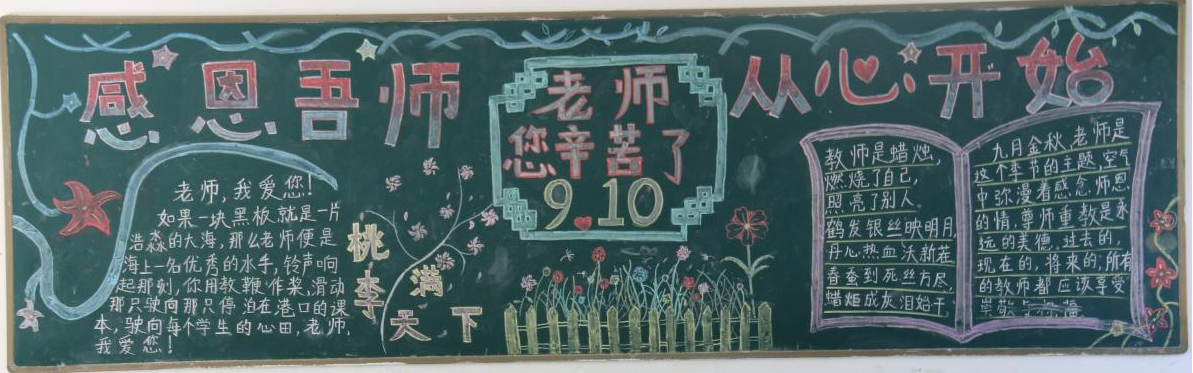 感恩吾师
老师
您辛苦了
9 10
从心开始
老师,我爱您!
如果一块黑板就是一片
浩淼的大海,那么老师便是
海上一名优秀的水手,铃声响
起那刻,你用教鞭作桨,滑动
那只驶向那只停泊在港口的课
本,驶向每个学生的心田,老师,
我爱您!
桃李满天下
教师是蜡烛,
燃烧了自己,
照亮了别人。
鹤发银丝映明月,
丹心热血沃新花
春蚕到死丝方尽,
蜡炬成灰泪始干,
九月金秋,老师是
这个季节的主题,空气
中弥漫着感念师恩
的情,尊师重教是永
远的美德,过去的,
现在的,将来的,所有
的教师都应该享受
崇敬与